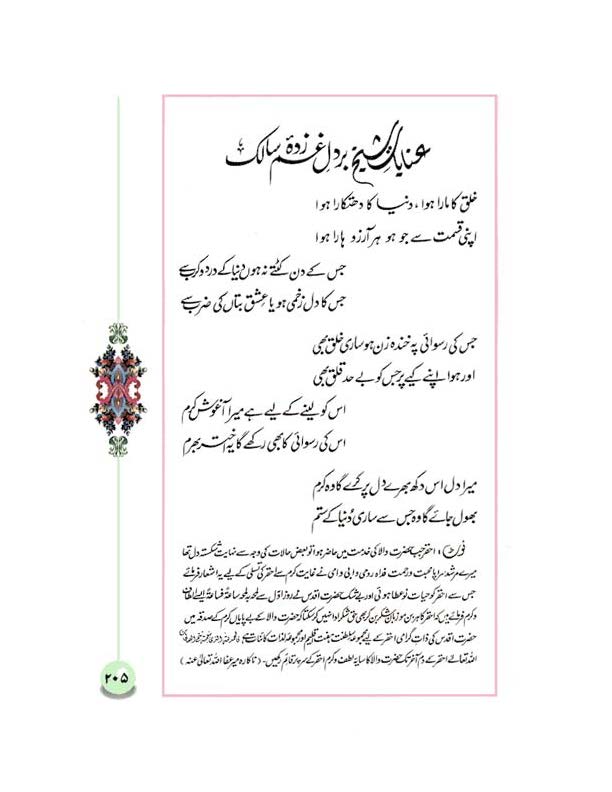 عنایاتِ شیخ بر دلِ غم زدۂ سالک
خلق کا مارا ہوا، دنیا کا دھتکارا ہوا
اپنی قسمت سے جو ہو ہر آرزو ہارا ہوا
جس کے دن کٹتے نہ ہوں دنیا کے درد و کرب سے
جس کا دل زخمی ہو یا عشقِ بتاں کی ضرب سے
جس کی رسوائی پہ خندہ زن ہو ساری خلق بھی
اور ہو اپنے کیے پر جس کو بے حد قلق بھی
اس کو لینے کے لیے ہے میرا آغوشِ کرم
اس کی رسوائی کا بھی رکھے گا یہ اختر بھرم
میرا دل اس دکھ بھرے دل پر کرے گا وہ کرم
بھول جائے گا وہ جس سے ساری دُنیا کے ستم
نوٹ: احقر جب حضرت والا کی خدمت میں حاضر ہوا تو بعض حالات کی وجہ سے نہایت شکستہ دل تھا
میرے مرشد سراپا محبت و رحمت فداہ روحی و ابی و امی نے غایت کرم سے احقر کی تسلی کے لیے یہ اشعار فرمائے
جس سے احقر کو حیاتِ نو عطا ہوئی اور بے شک حضرت اقدس نے روزِ اوّل سے مجھ پہ ساعۃً فساعۃً ایسے الطاف
و کرم فرمائے ہیں کہ احقر کا ہر بن مو زبانِ شکر بن کر بھی حق شکر ادا نہیں کر سکتا کہ حضرت والا کے بے پایاں کرم کے صدقہ میں
حضرت اقدس کی ذاتِ گرامی احقر کے لیے مجموعہ سلطنت ہفت اقلیم اور مجموعہ لذات کائنات ہے
اللہ تعالیٰ احقر کے دم آخر تک حضرت والا کا سایۂ لطف و کرم احقر کے سر پر قائم رکھیں۔ (ناکارہ میر عفا اللہ تعالیٰ عنہ)
۲۰۵